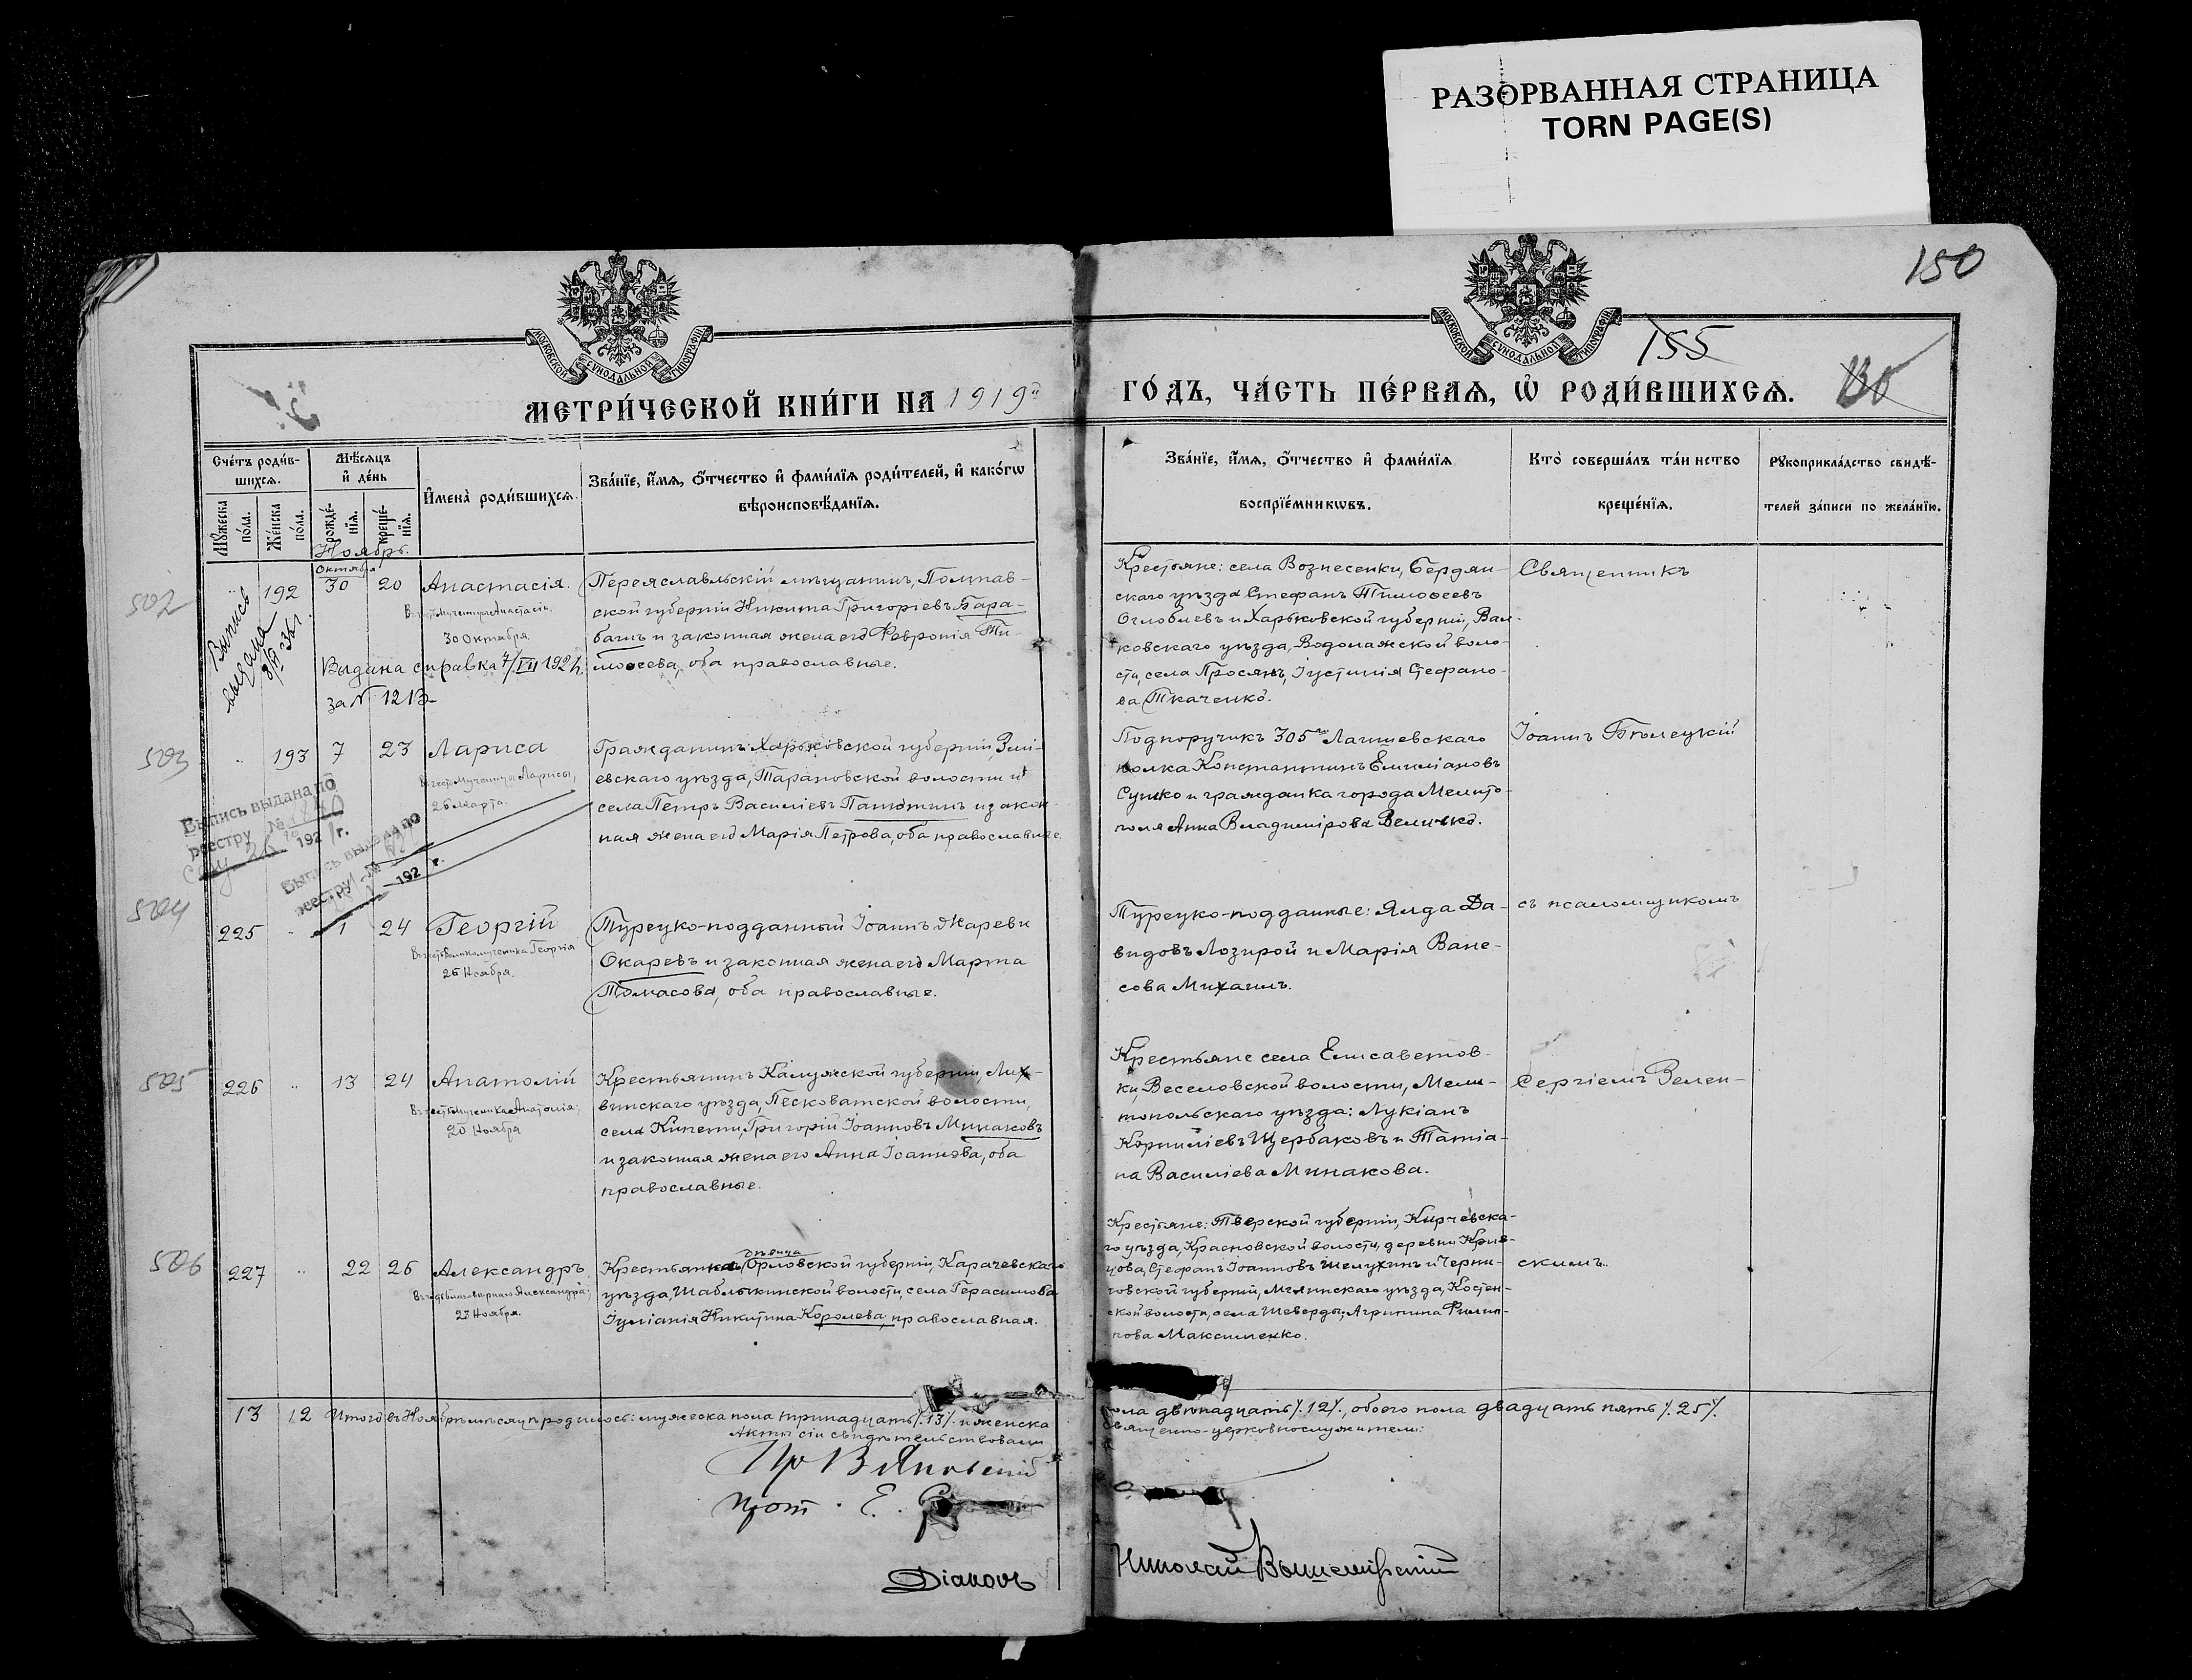 РАЗОРВАННАЯ СТРАНИЦА
TORN PAGE(S)
150
МОСКОВСКОЙ СѴНОДАЛЬНОЙ ТИПОГРАФІИ
МОСКОВСКОЙ СѴНОДАЛЬНОЙ ТИПОГРАФІИ
155
МЕТРИ́ЧЕСКОЙ КНИ́ГИ НА 1919й
ГО́ДЪ, ЧА́СТЬ ПЕ́РВАѦ, Ѡ҆ РОДИ́ВШИХСѦ.
Сче́тъ роди́в-
шихсѧ.
Мѣ́сяцъ
и҆ де́нь
Мꙋ́жеска
по́ла.
Же́нска
по́ла.
рожде́-
нїѧ.
креще́-
нїѧ.
И҆мена̀ роди́вшихсѧ.
Зва́нїе, и҆́мѧ, ѻ҆́тчество и҆ фами́лїѧ роди́телей, и҆ како́гѡ
вѣроисповѣ́данїѧ.
Зва́нїе, и҆́мѧ, ѻ҆́тчество и҆ фами́лїѧ
воспрїе́мникѡвъ.
Кто̀ соверша́лъ та́инство
креще́нїѧ.
Рꙋкоприкла́дство свидѣ́-
телей за́писи по жела́нїю.
Ноябрь.
502
Октября
192 30 20 Анастасія.
Въ честь Мученицы Анастасіи,
30 Октября.
Выпись
выдана
Выдана справка 7/VII 1924
за № 1213
Переяславльскій мѣщанинъ, Полтав-
ской губерніи Никита Григоріевъ Бара-
банъ и законная жена его Февронія Ти-
моѳеева, оба православные.
Крестьяне: села Вознесенки, Бердян-
скаго уѣзда Стефанъ Тимоѳеевъ
Оглоблевъ и Харьковской губерніи, Вал-
ковскаго уѣзда, Водолажской воло-
сти, села Просяне, Іустинія Стефано-
ва Ткаченко.
Священникъ
503
193 7 23 Лариса
Въ честь Мученицы Ларисы,
26 Марта.
Выпись выдана по
реестру №
192 г.
Выпись выдана по
реестру №
192 г.
Гражданинъ Харьковской губерніи, Змі-
евскаго уѣзда, Тарановской волости и
села Петръ Василіевъ Панютинъ и закон-
ная жена его Марія Петрова, оба православные.
Подпоручикъ 305го Лаишевскаго
полка Константинъ Емиліановъ
Сушко и гражданка города Мелито-
поля Анна Владимірова Величко.
Іоаннъ Бѣлецкій
504
225 1 24 Георгій
Въ честь Великомученика Георгія
26 Ноября.
Турецко-подданный Іоаннъ Жареви
Окаревъ и законная жена его Марта
Томасова, оба православные.
Турецко-подданные: Ялда Да-
видовъ Лозирой и Марія Ване-
сова Михаилъ.
съ псаломщикомъ
505
226 13 24 Анатолій
Въ честь Мученика Анатолія,
20 Ноября
Крестьянинъ Калужской губерніи, Лих-
винскаго уѣзда, Песковатской волости,
села Кипети, Григорій Іоанновъ Минаковъ
и законная жена его Анна Іоаннова, оба
православные.
Крестьяне села Елисаветов-
ки, Веселовской волости, Мели-
топольскаго уѣзда: Лукіанъ
Корниліевъ Щербаковъ и Татіа-
на Василіева Минакова.
Сергіемъ Зелен-
506
227 22 26 Александръ
Въ честь благовѣрнаго Александра,
23 Ноября.
дѣвица
Крестьянка Орловской губерніи, Карачевскаго
уѣзда, Шаблыкинской волости, села Герасимова
Іуліанія Никитина Королева, православная.
Крестьяне: Тверской губерніи, Кирчевска-
го уѣзда, Красновской волости, деревни Крив-
цова, Стефанъ Іоанновъ Шелухинъ и Черни-
говской губерніи, Мглинскаго уѣзда, Костен-
ской волости, села Шеверды, Агрипина Филип-
пова Максименко.
скимъ.
13 12 Итого въ Ноябрѣ мѣсяцѣ родилось: мужеска пола тринадцать /.13/. и женска
пола двѣнадцать /.12/., обоего пола двадцать пять /.25/.
Акты сіи свидѣтельствовали
священно-церковнослужители:
Пр В Яновскій
Прот. Е.
Діаконъ
Николай Вышемірскій